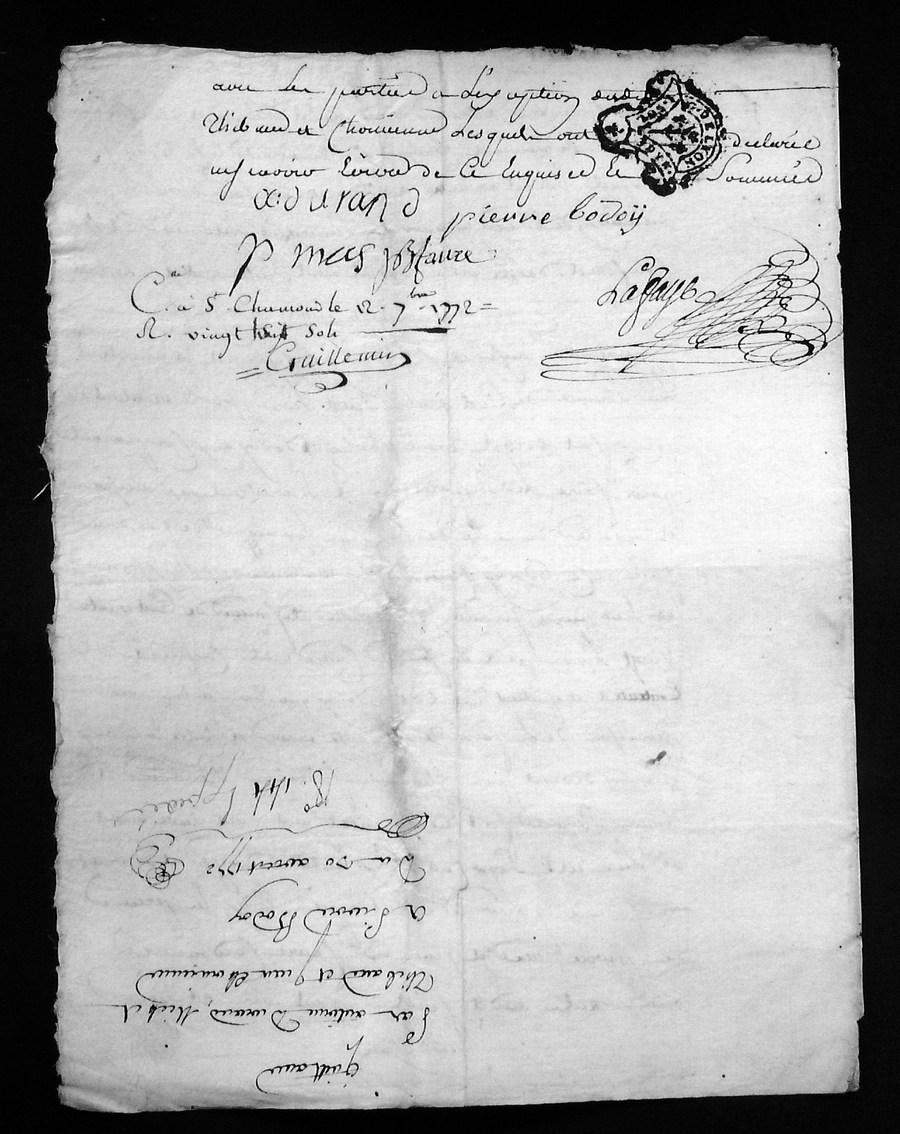 avec les parties a L'exception desd
Thibaud et Chomienne Lesquels ont declaré
ne scavoir Ecrire de ce Enquis et Sommés
DE LYON
a: durand
pierre bodoÿ
P mas JBfaure
Lafaye
C. a St Chamond le 12. 7bre 1772 =
R. vingt huit Sols
Craillemin
quittance
Par antoine Durand, Michel
Thibaud et Jean Chomienne
a Pierre Boday
Du 30 aoust 1772